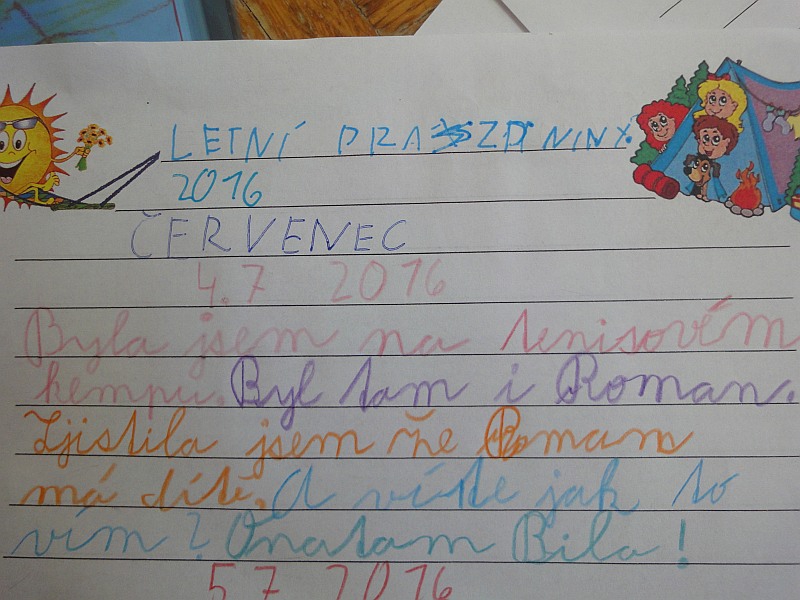 LETNÍ PRAZDNINY.
2016
ČERVENEC
4.7 2016
Byla jsem na tenisovém
kempu. Byl tam i Roman.
Zjistila jsem že Romam
má dítě. A víte jak to
vím? Onatam Bila!
5 7 2016